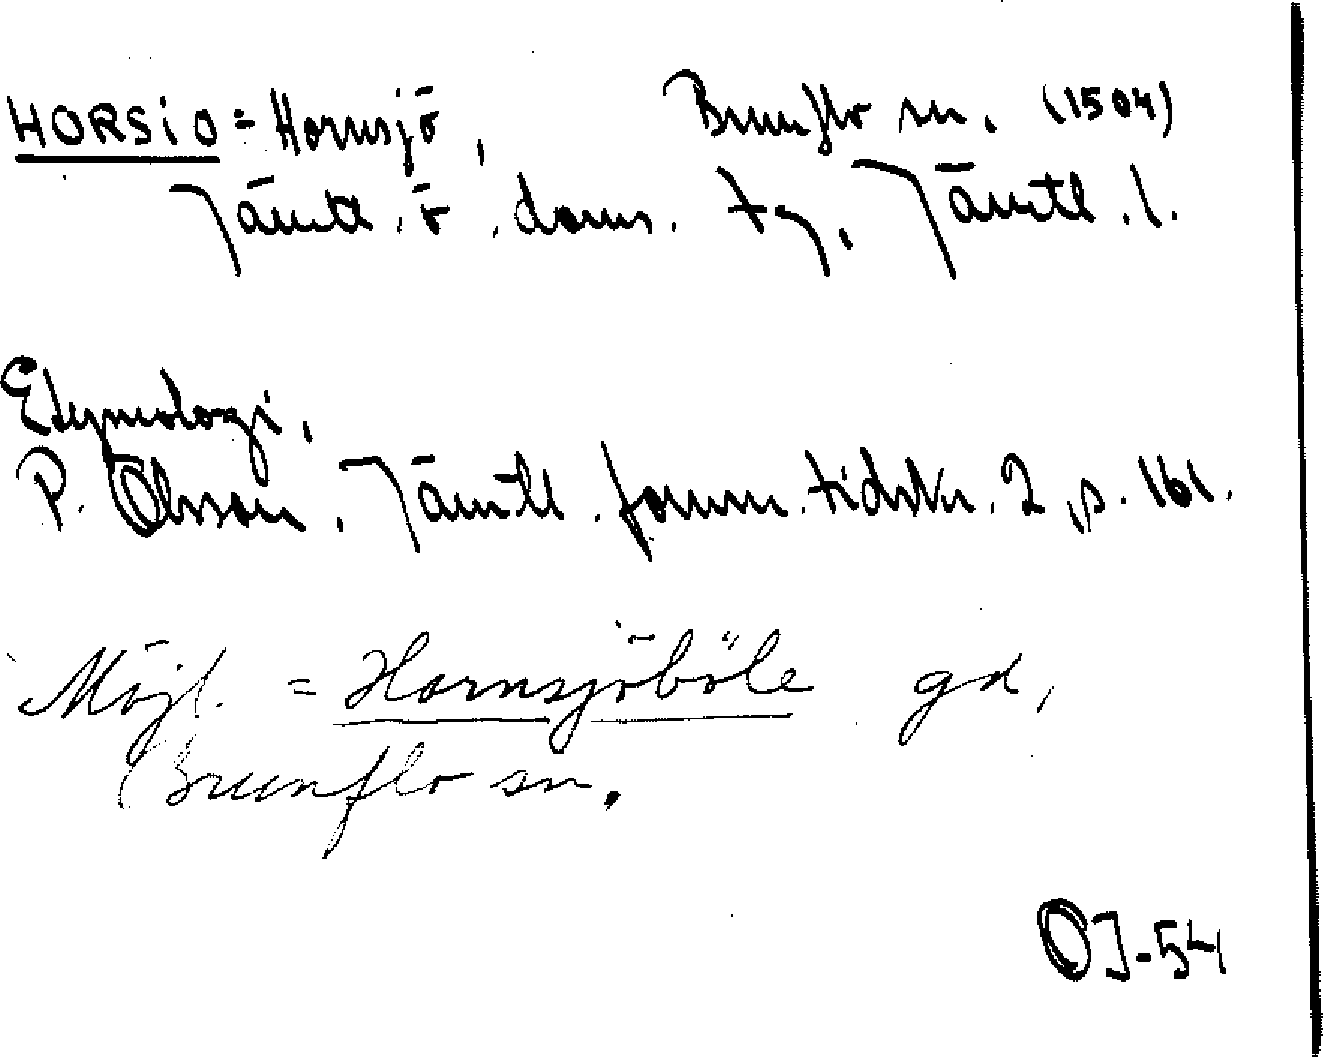 HORSIO = Hornsjö, Brunflo sn. (1504)
Jämtl. ö. doms. tg. Jämtl. l.
Etymologi.
P. Olsson. Jämtl. fornm. tidskr. 2, p. 161.
Möjl. = Hornsjöböle gd,
Brunflo sn.
OJ-54